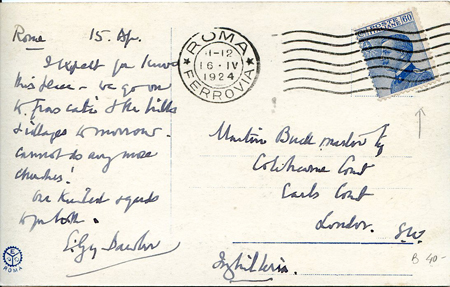 Roma 15. Ap.
I expect you know
this place - we go on
to Frascati & the hills
& villages tomorrow -
cannot do any more
churches!
Our kindest regards
to you both.
ROMA
FERROVIA
11-12
16·IV
1924
60
Martin Buckmaster Esq
Coleherne Court
Earls Court
London. S.W.
Inghilterra.
B 40-
ROMA